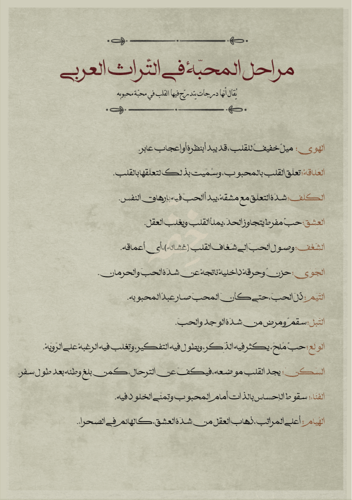 مراحل المحبّة في التّراث العربي
يُقال أنّها درجات يتدرّج فيها القلب في محبّة محبوبه
الهوى: ميل خفيف للقلب، قد يبدأ بنظرة أو إعجاب عابر.
العلاقة: تعلق القلب بالمحبوب، وسمّيت بذلك لتعلقها بالقلب.
الكلف: شدة التعلق مع مشقة؛ يبدأ الحب فيه بإرهاق النفس.
العشق: حب مفرط يتجاوز الحد، يملأ القلب ويغلب العقل.
الشغف: وصول الحب إلى شغاف القلب (غشائه)، أي أعماقه.
الجوى: حزن وحرقة داخلية ناتجة عن شدة الحب والحرمان.
التيم: ذُل الحب، حتى كأن المحب صار عبدًا لمحبوبه.
التبل: سقم ومرض من شدة الوجد والحب.
الولع: حب مُلح، يكثر فيه الذكر، ويطول فيه التفكير، وتغلب فيه الرغبة على الرؤية.
السكن: يجد القلب موضعه، فيكف عن الترحال، كمن بلغ وطنه بعد طول سفر.
الفناء: سقوط الإحساس بالذات أمام المحبوب وتمني الخلود فيه.
الهيام: أعلى المراتب، ذهاب العقل من شدة العشق، كالهائم في الصحراء.